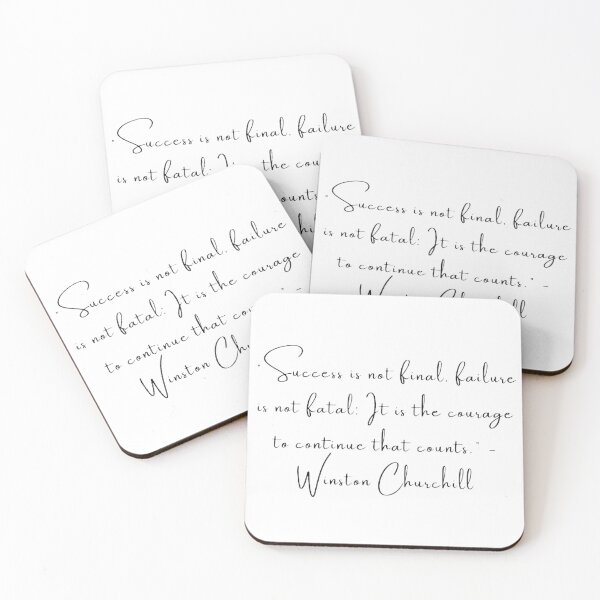 "Success is not final, failure
is not fatal: It is the
"Success is not final, failure
is not fatal: It is the courage
to continue that counts." -
Winston Churchill
"Success is not final, failure
is not fatal: It is the courage
to continue that
Winston
"Success is not final, failure
is not fatal: It is the courage
to continue that counts." -
Winston Churchill